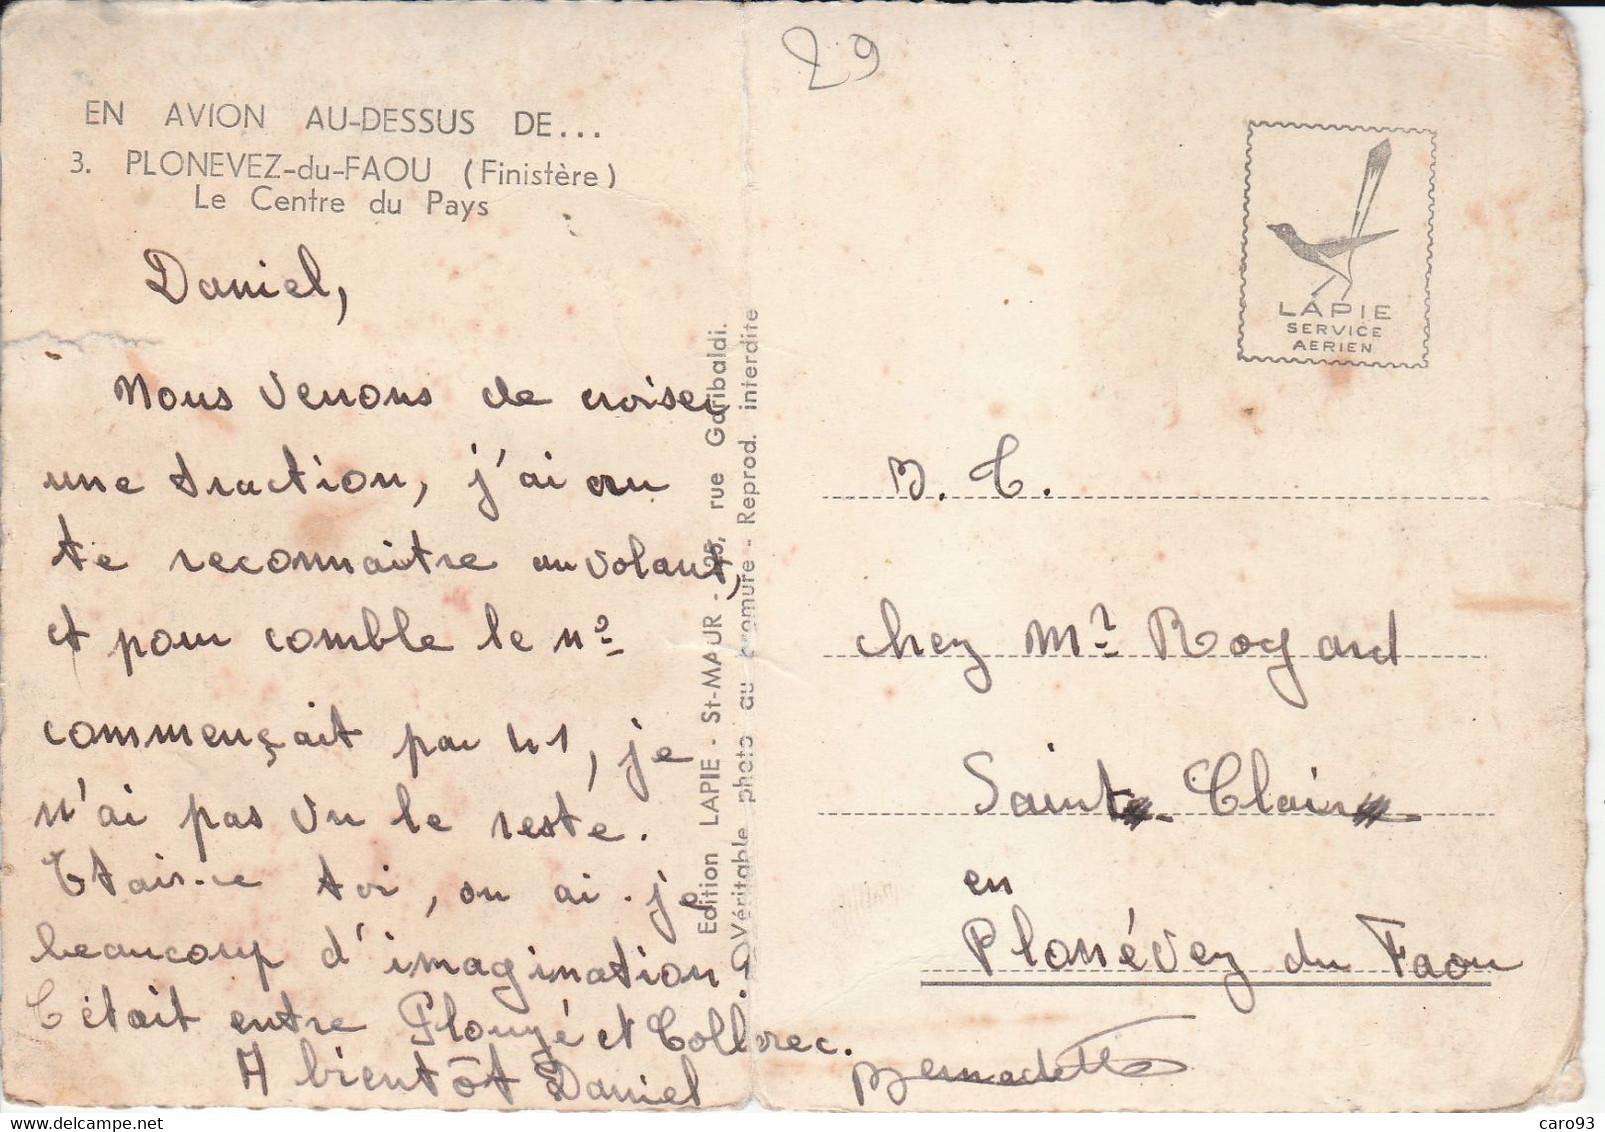 29
EN AVION AU-DESSUS DE...
3. PLONEVEZ-du-FAOU (Finistère)
Le Centre du Pays
Daniel,
Nous venons de croiser
une traction, j'ai cru
te reconnaitre au volant,
et pour comble le nº
commençait par 41, je
n'ai pas vu le reste.
Etais-ce toi, ou ai-je
beaucoup d'imagination ?
C'était entre Plouyé et Collorec.
A bientôt Daniel
Bernadette
Edition LAPIE - St-MAUR - 25, rue Garibaldi.
Véritable photo au bromure - Reprod. interdite
LAPIE
SERVICE
AERIEN
chez Mr Rogard
Saint-Clair
en
Plonévez du Faou
caro93